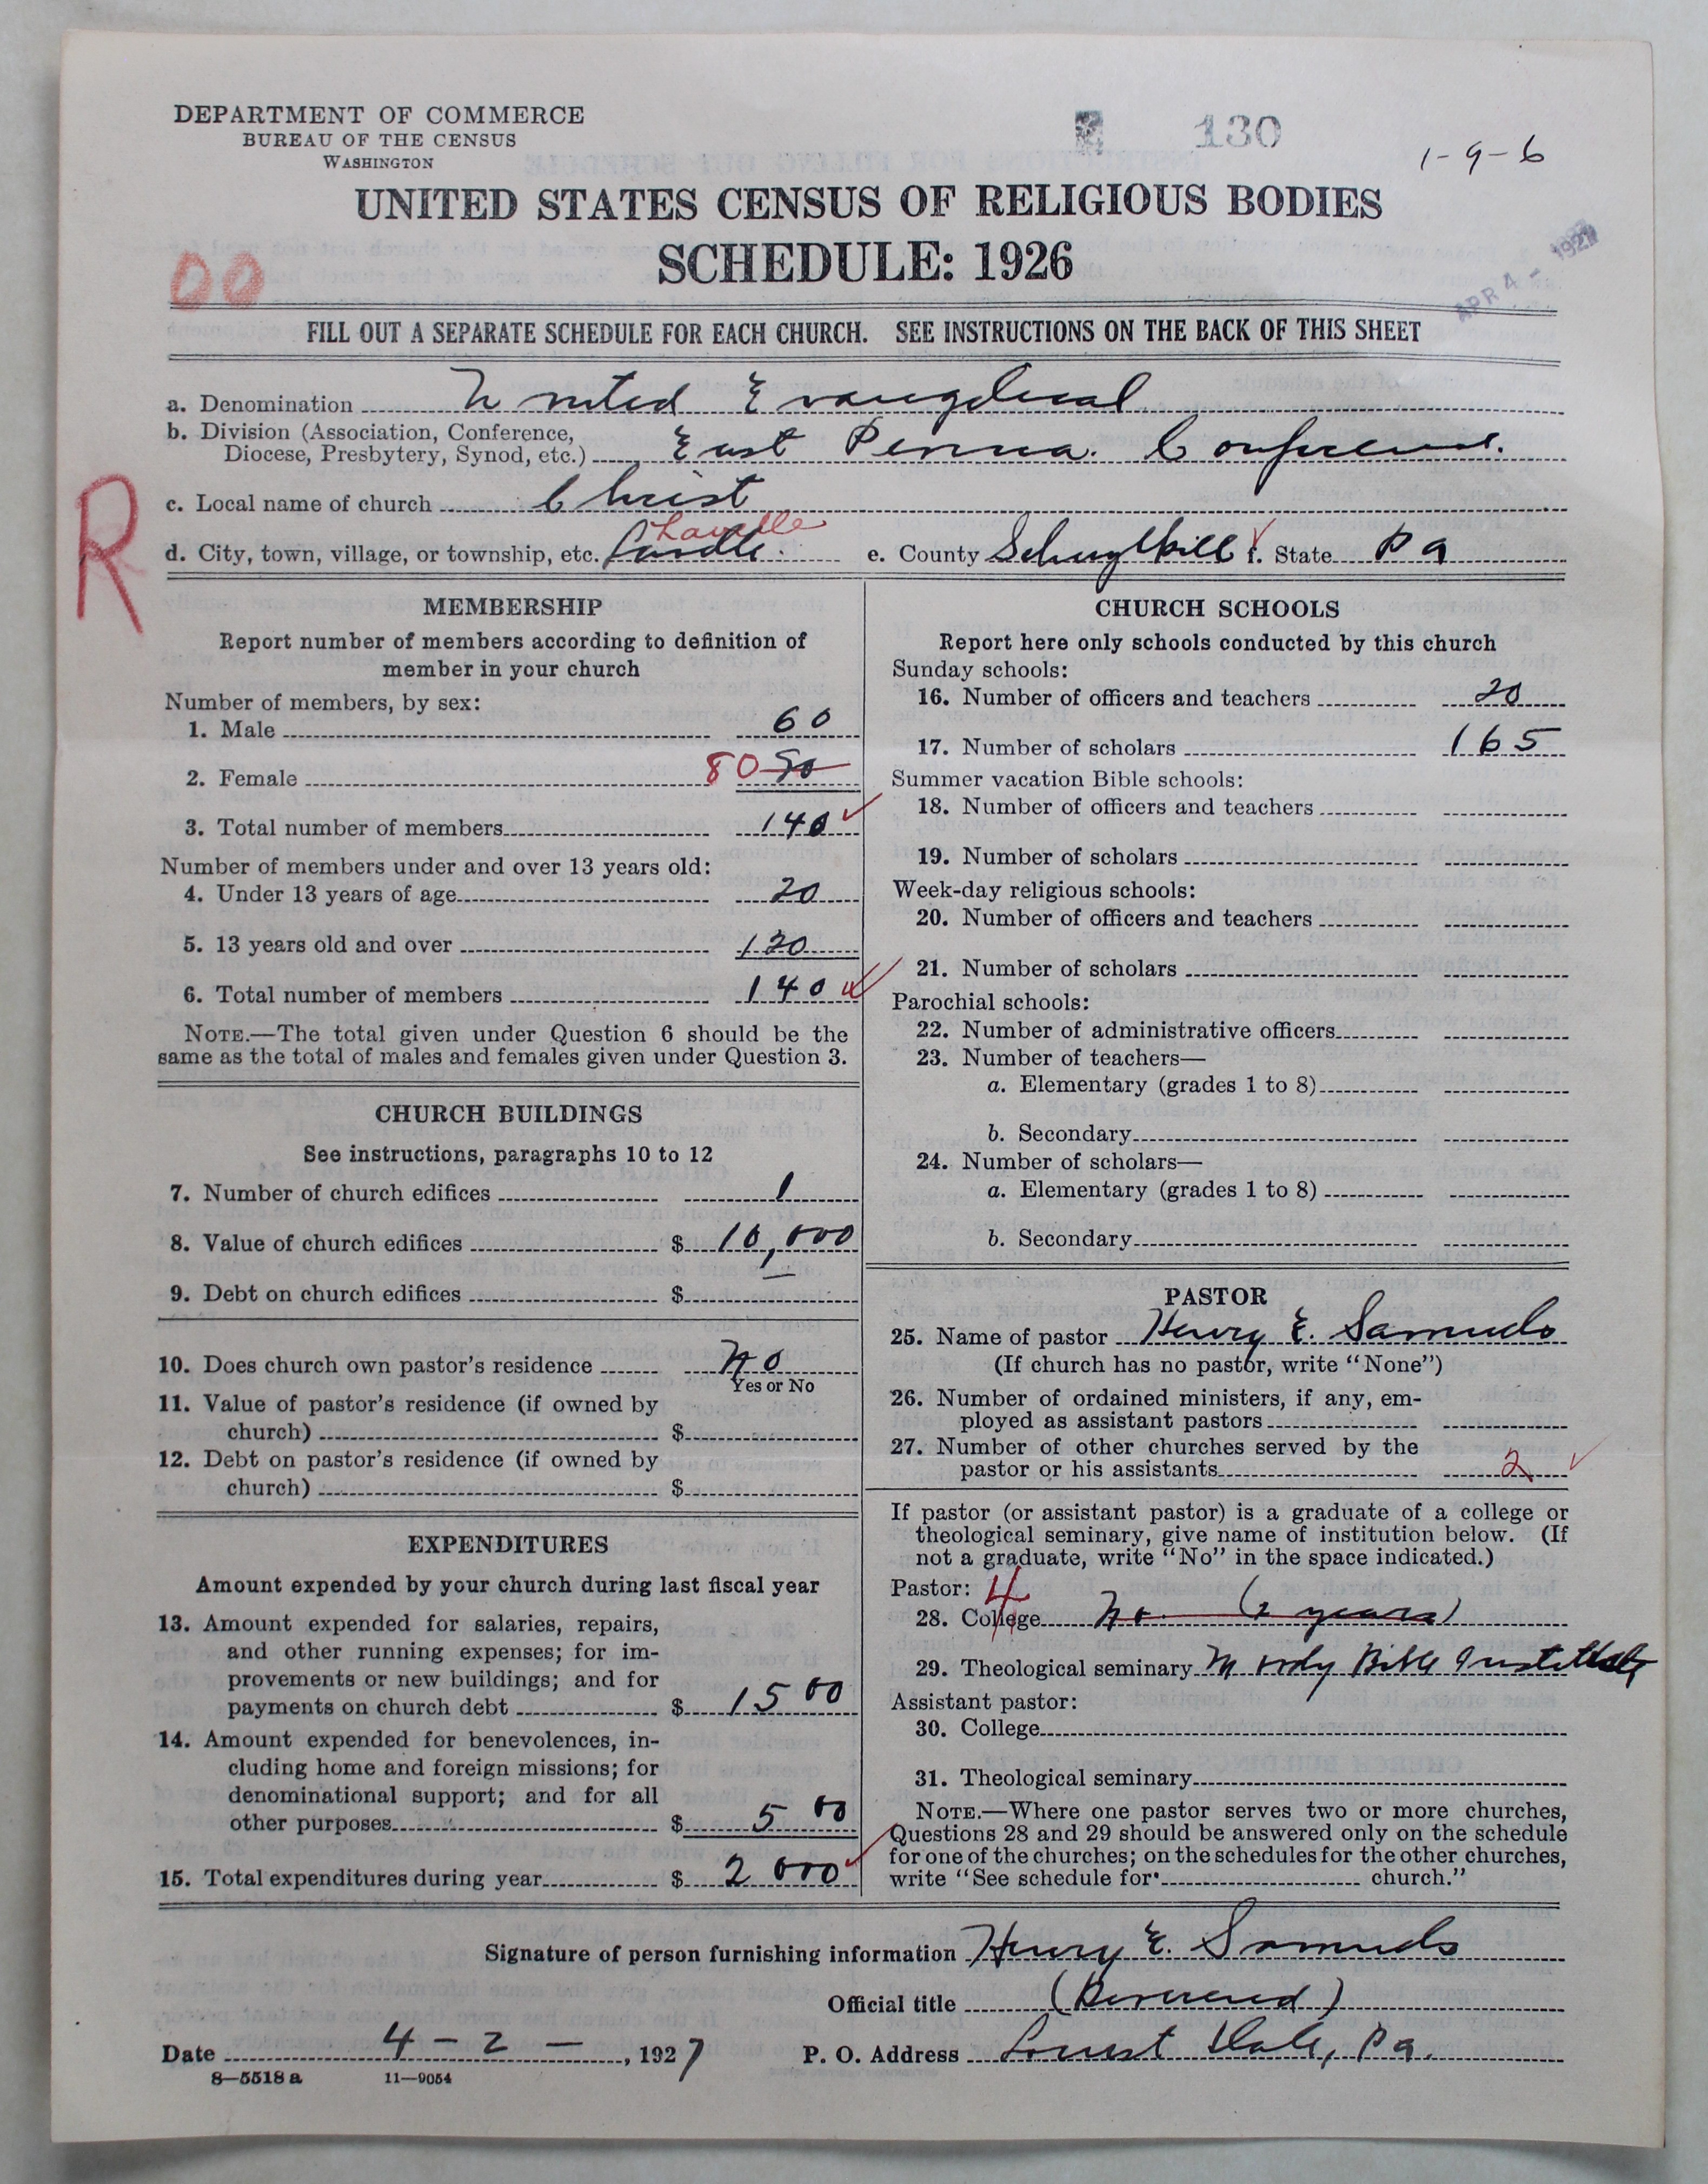 DEPARTMENT OF COMMERCE
BUREAU OF THE CENSUS
WASHINGTON
130
1-9-6
UNITED STATES CENSUS OF RELIGIOUS BODIES
SCHEDULE: 1926
00
APR 4 - 1927
FILL OUT A SEPARATE SCHEDULE FOR EACH CHURCH. SEE INSTRUCTIONS ON THE BACK OF THIS SHEET
a. Denomination United Evangelical
b. Division (Association, Conference,
Diocese, Presbytery, Synod, etc.) East Penna. Conference.
R
c. Local name of church Christ
Lavelle
d. City, town, village, or township, etc. Lavelle. e. County Schuylkill f. State Pa
MEMBERSHIP
Report number of members according to definition of
member in your church
Number of members, by sex:
1. Male 60
2. Female 80 90
3. Total number of members 140
Number of members under and over 13 years old:
4. Under 13 years of age 20
5. 13 years old and over 120
6. Total number of members 140
NOTE.—The total given under Question 6 should be the
same as the total of males and females given under Question 3.
CHURCH BUILDINGS
See instructions, paragraphs 10 to 12
7. Number of church edifices 1
8. Value of church edifices $ 10,000
9. Debt on church edifices $ —
10. Does church own pastor's residence No
Yes or No
11. Value of pastor's residence (if owned by
church) $
12. Debt on pastor's residence (if owned by
church) $
EXPENDITURES
Amount expended by your church during last fiscal year
13. Amount expended for salaries, repairs,
and other running expenses; for im-
provements or new buildings; and for
payments on church debt $ 1500
14. Amount expended for benevolences, in-
cluding home and foreign missions; for
denominational support; and for all
other purposes $ 500
15. Total expenditures during year $ 2000
CHURCH SCHOOLS
Report here only schools conducted by this church
Sunday schools:
16. Number of officers and teachers 20
17. Number of scholars 165
Summer vacation Bible schools:
18. Number of officers and teachers
19. Number of scholars
Week-day religious schools:
20. Number of officers and teachers
21. Number of scholars
Parochial schools:
22. Number of administrative officers
23. Number of teachers—
a. Elementary (grades 1 to 8)
b. Secondary
24. Number of scholars—
a. Elementary (grades 1 to 8)
b. Secondary
PASTOR
25. Name of pastor Henry E. Samuels
(If church has no pastor, write "None")
26. Number of ordained ministers, if any, em-
ployed as assistant pastors
27. Number of other churches served by the
pastor or his assistants 2
If pastor (or assistant pastor) is a graduate of a college or
theological seminary, give name of institution below. (If
not a graduate, write "No" in the space indicated.)
Pastor: 4
28. College No (2 years)
29. Theological seminary Moody Bible Institute
Assistant pastor:
30. College
31. Theological seminary
NOTE.—Where one pastor serves two or more churches,
Questions 28 and 29 should be answered only on the schedule
for one of the churches; on the schedules for the other churches,
write "See schedule for church."
Signature of person furnishing information Henry E. Samuels
Official title (Reverend)
Date 4-2-, 1927 P. O. Address Locust Dale, Pa.
8—5518 a 11—9054